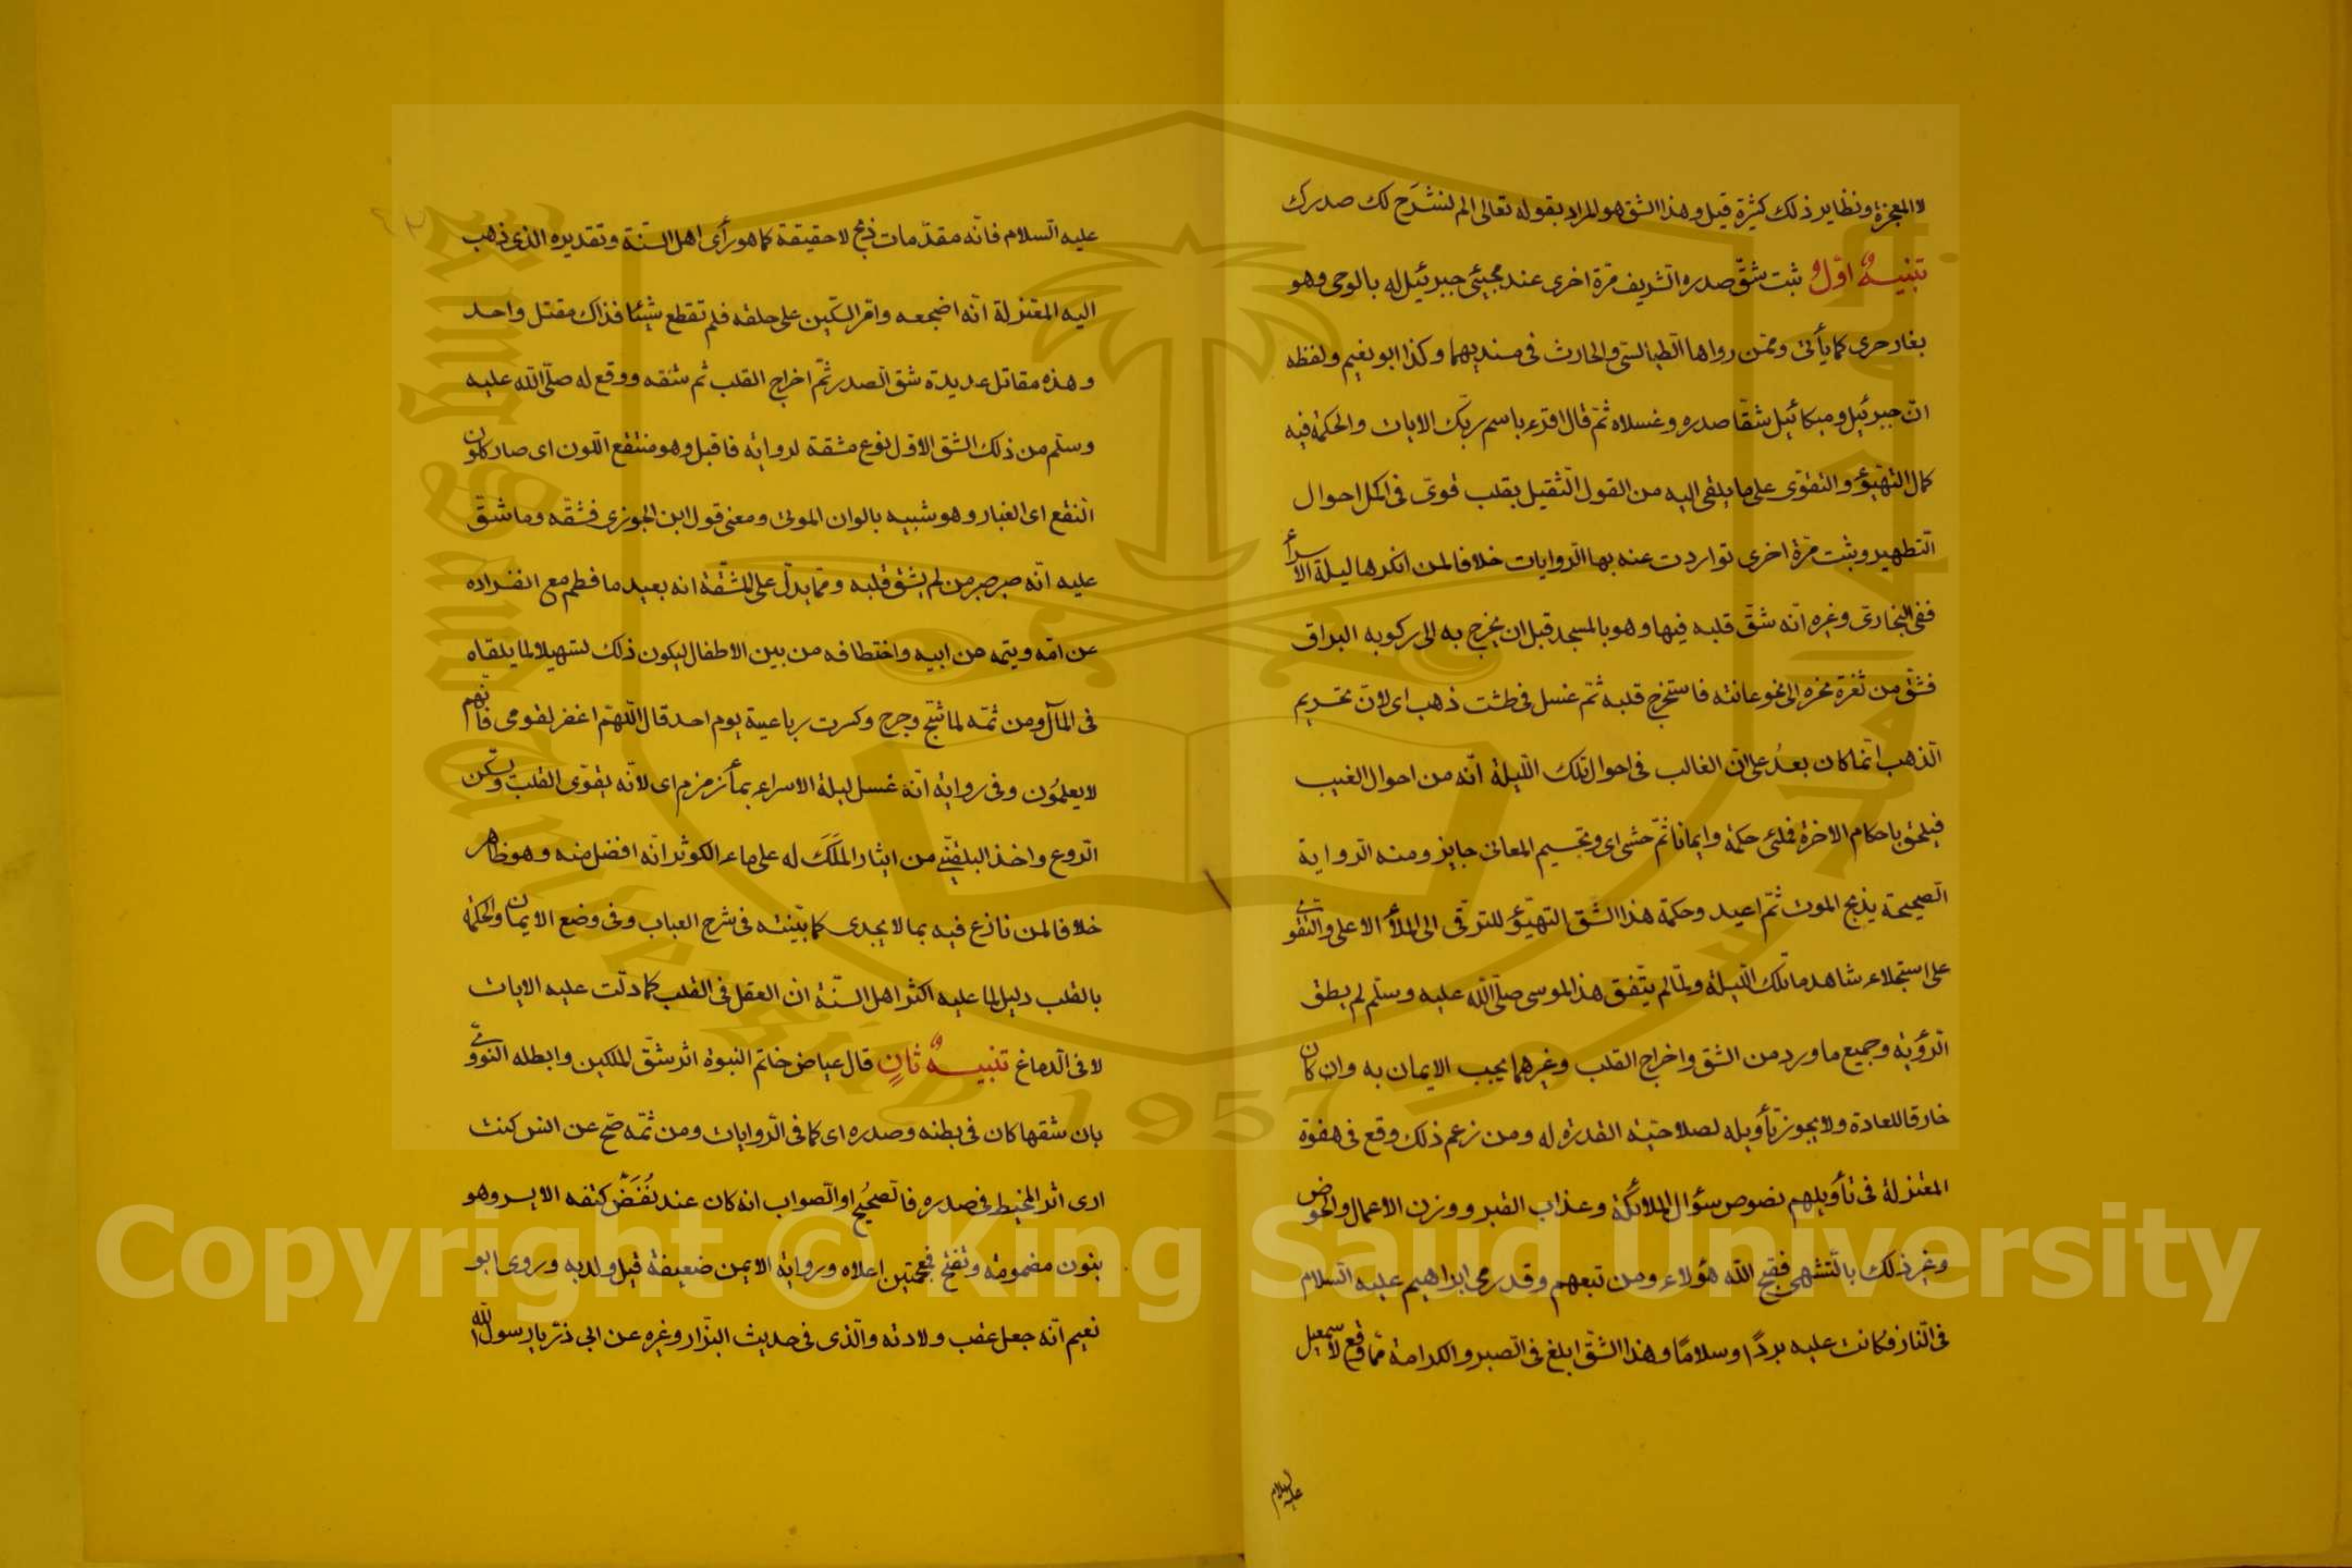 لا المعجزة ونظاير ذلك كثيرة قيل وهذا الشق هو المراد بقوله تعالى الم نشرح لك صدرك
تنبيه اوّل ثبت شقّ صدره الشريف مرّة اخرى عند مجيئ جبرئيل له بالوحى وهو
بغار حرى كما يأتى وممّن رواها الطيالسى والحارث فى مسنديهما وكذا ابو نعيم ولفظه
انّ جبرئيل وميكائيل شقّا صدره وغسلاه ثمّ قال اقرء باسم ربّك الايات والحكمة فيه
كمال التهيّؤ والتقوّى على ما يلقى اليه من القول الثقيل بقلب قوىّ فى اكمل احوال
التطهير وثبت مرّة اخرى تواردت عنه بها الروايات خلافا لمن انكرها ليلة الاسراء
ففى البخارى وغيره انّه شقّ قلبه فيها وهو بالمسجد قبل ان يخرج به الى ركوبه البراق
فشقّ من ثغرة نحره الى نحو عانته فاستخرج قلبه ثمّ غسل فى طشت ذهب اى لانّ تحريم
الذهب انّما كان بعدُ على انّ الغالب فى احوال تلك الليلة انّه من احوال الغيب
فيلحق باحكام الاخرة فملئ حكمة وايمانا ثمّ حشى اى وتجسيم المعانى جايز ومنه الرواية
الصحيحة يذبح الموت ثمّ اعيد وحكمة هذا الشّق التهيّؤ للترقّى الى الملأ الاعلى والتقوّى
على استجلاء شاهد ما تلك الليلة ولمّا لم يتّفق هذا لموسى صلّى الله عليه وسلّم لم يطق
الرؤية وجميع ما ورد من الشق واخراج القلب وغيرهما يجب الايمان به وان كان
خارقا للعادة ولا يجوز تأويله لصلاحيّة القدرة له ومن زعم ذلك وقع فى هفوة
المعتزلة فى تأويلهم نصوص سؤال الملائكة وعذاب القبر ووزن الاعمال والحوض
وغير ذلك بالتشهى فقبح الله هؤلاء ومن تبعهم وقد رمى ابراهيم عليه السلام
فى النار فكانت عليه بردًا وسلامًا وهذا الشقّ ابلغ فى الصبر والكرامة ممّا وقع لاسمعيل
عليه السلام
عليه السلام فانّه مقدّمات ذبح لا حقيقة كما هو رأى اهل السّنة وتقديره الذى ذهب
اليه المعتزلة انّه اضجعه وامّر السكّين على حلقه فلم تقطع شيئا فذاك مقتل واحد
وهذه مقاتل عديدة شق الصدر ثمّ اخراج القلب ثم شقه ووقع له صلّى الله عليه
وسلّم من ذلك الشق الاوّل نوع مشقة لرواية فاقبل وهو منتقع اللون اى صار كلون
النقع اى الغبار وهو شبيه بالوان الموتى ومعنى قول ابن الجوزى فشقّه وما شقّ
عليه انّه صبر صبر من لم يشق قلبه وممّا يدلّ على المشقّة انه بعيد ما فطم مع انفراده
عن امّه ويتمه من ابيه واختطافه من بين الاطفال ليكون ذلك تسهيلا لما يلقاه
فى المآل ومن ثمّه لما شجّ وجرح وكسرت رباعيية يوم احد قال اللهمّ اغفر لقومى فانّهم
لا يعلمُون وفى رواية انّه غسل ليلة الاسراء بماء زمزم اى لانّه يقوّى القلب ويسكّن
الروع واخذ البلقينى من ايثار المَلَك له على ماء الكوثر انّه افضل منه وهو ظاهر
خلافا لمن نازع فيه بما لا يجدى كما بيّنته فى شرح العباب وفى وضع الايمان والحكمة
بالقلب دليل لما عليه اكثر اهل السنّة ان العقل فى القلب كما دلّت عليه الايات
لا فى الدماغ تنبيه ثانٍ قال عياض خاتم النبوة اثر شقّ الملكين وابطله النووى
بان شقها كان فى بطنه وصدره اى كما فى الروايات ومن ثمّه صّح عن انس كنت
ارى اثر المخيط فى صدره فالصحيُح او الصواب انه كان عند نُغَض كتفه الايسر وهو
بنون مضمومة وتفتح فمعجمتين اعلاه ورواية الايمن ضعيفة قيل ولد به وروى ابو
نعيم انّه جعل عقب ولادته والّذى فى حديث البزّار وغيره عن ابى ذرّ يا رسول الله
Copyright © King Saud University
King Saud University
1957